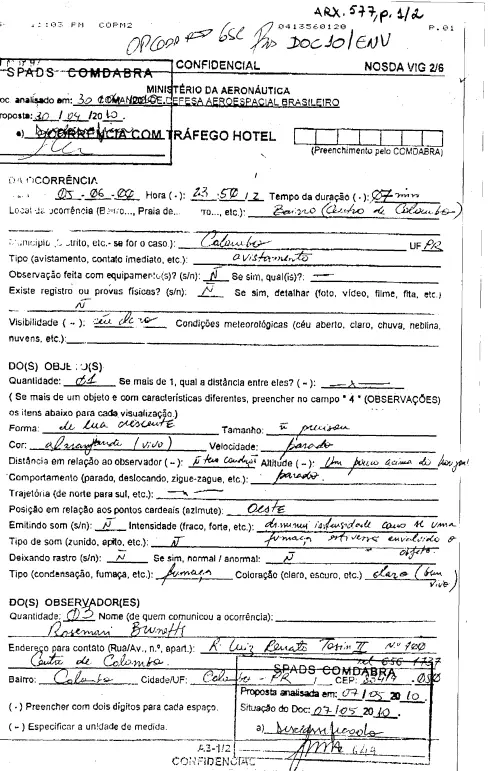 ARX. 577, p. 1/2
:03 PM COPM2 0413560120 P.01
DOC10/ENV
CONFIDENCIAL NOSDA VIG 2/6
SPADS COMDABRA
MINISTÉRIO DA AERONÁUTICA
oc. analisado em: 30 COMANDO DE DEFESA AEROESPACIAL BRASILEIRO
roposta: 30 / 04 / 2010.
a)
OCORRÊNCIA COM TRÁFEGO HOTEL
(Preenchimento pelo COMDABRA)
DA OCORRÊNCIA
05-06-00 Hora ( - ): 23:50 / 2 Tempo da duração ( - ): 07 min
Local da ocorrência (Bairro..., Praia de... to..., etc.): Bairro (Centro de Colombo)
Município (Distrito, etc.- se for o caso ): Colombo UF PR
Tipo (avistamento, contato imediato, etc.): avistamento
Observação feita com equipamento(s)? (s/n): N Se sim, qual(is)?: —
Existe registro ou provas físicas? (s/n): N Se sim, detalhar (foto, vídeo, filme, fita, etc.)
N
Visibilidade ( ~ ): céu claro Condições meteorológicas (céu aberto, claro, chuva, neblina,
nuvens, etc.):
DO(S) OBJETO(S)
Quantidade: 01 Se mais de 1, qual a distância entre eles? ( ~ ):
( Se mais de um objeto e com características diferentes, preencher no campo " 4 " (OBSERVAÇÕES)
os itens abaixo para cada visualização.)
Forma: de lua crescente Tamanho: ñ precisou
Cor: alaranjado (vivo) Velocidade: parado
Distância em relação ao observador ( ~ ): Altitude ( ~ ): Um pouco acima do
Comportamento (parado, deslocando, zigue-zague, etc.): parado.
Trajetória (de norte para sul, etc.):
Posição em relação aos pontos cardeais (azimute): OESTE
Emitindo som (s/n): N Intensidade (fraco, forte, etc.): diminui intensidade como se uma
Tipo de som (zunido, apito, etc.): N fumaça estivesse envolvido o
objeto.
Deixando rastro (s/n): N Se sim, normal / anormal: N
Tipo (condensação, fumaça, etc.): fumaça Coloração (claro, escuro, etc.) claro (bem
vivo)
DO(S) OBSERVADOR(ES)
Quantidade: 03 Nome (de quem comunicou a ocorrência):
Rosemari Brunetti
Endereço para contato (Rua/Av., n.º, apart.): R. Luiz Renato II Nº 100
Centro de Colombo. 656 1737
Bairro: Colombo Cidade/UF: Colombo - PR / CEP:
SPADS COMDABRA
( - ) Preencher com dois dígitos para cada espaço.
Proposta analisada em: 07 / 05 20 10.
( ~ ) Especificar a unidade de medida.
Situação do Doc: 07 / 05 20 10.
a) Desclassificado
A3-1/2
CONFIDENCIAL